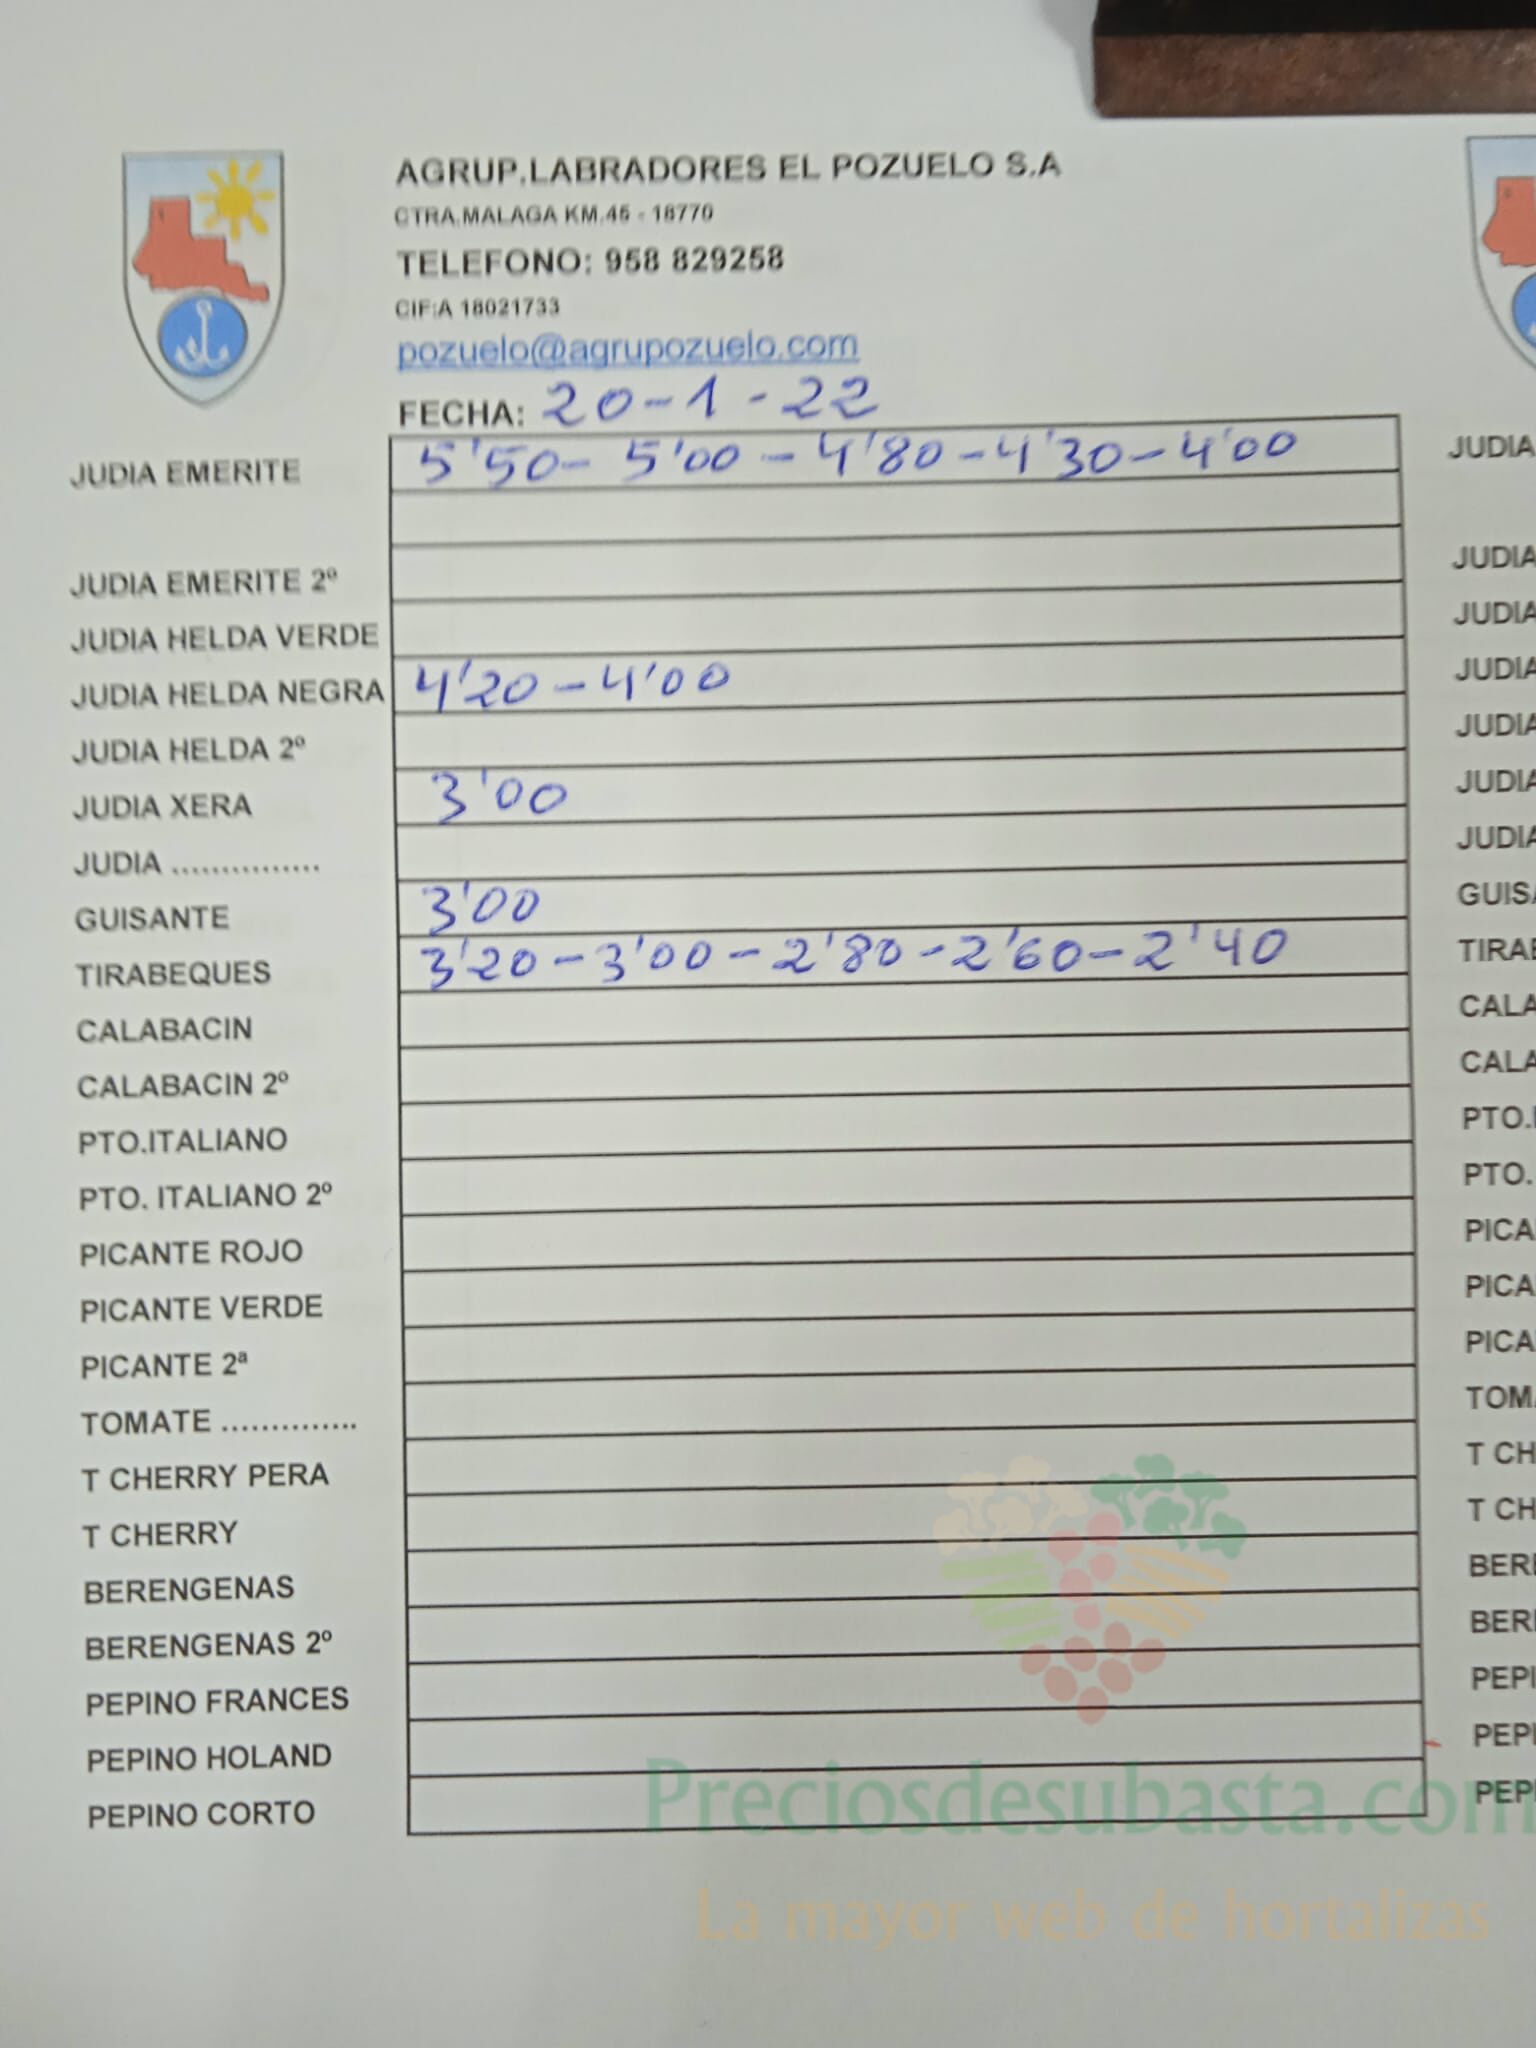 AGRUP.LABRADORES EL POZUELO S.A
CTRA.MALAGA KM.45 - 18770
TELEFONO: 958 829258
CIF:A 18021733
pozuelo@agrupozuelo.com
FECHA: 20-1-22
JUDIA EMERITE 5'50 - 5'00 - 4'80 - 4'30 - 4'00
JUDIA EMERITE 2º
JUDIA HELDA VERDE
JUDIA HELDA NEGRA 4'20 - 4'00
JUDIA HELDA 2º
JUDIA XERA 3'00
JUDIA ...............
GUISANTE 3'00
TIRABEQUES 3'20 - 3'00 - 2'80 - 2'60 - 2'40
CALABACIN
CALABACIN 2º
PTO.ITALIANO
PTO. ITALIANO 2º
PICANTE ROJO
PICANTE VERDE
PICANTE 2ª
TOMATE ..............
T CHERRY PERA
T CHERRY
BERENGENAS
BERENGENAS 2º
PEPINO FRANCES
PEPINO HOLAND
PEPINO CORTO
JUDIA
JUDIA
JUDIA
JUDIA
JUDIA
JUDIA
JUDIA
GUISA
TIRAB
CALA
CALA
PTO.
PTO.
PICA
PICA
PICA
TOM
T CH
T CH
BER
BER
PEPI
PEPI
PEPI
Preciosdesubasta.com
La mayor web de hortalizas